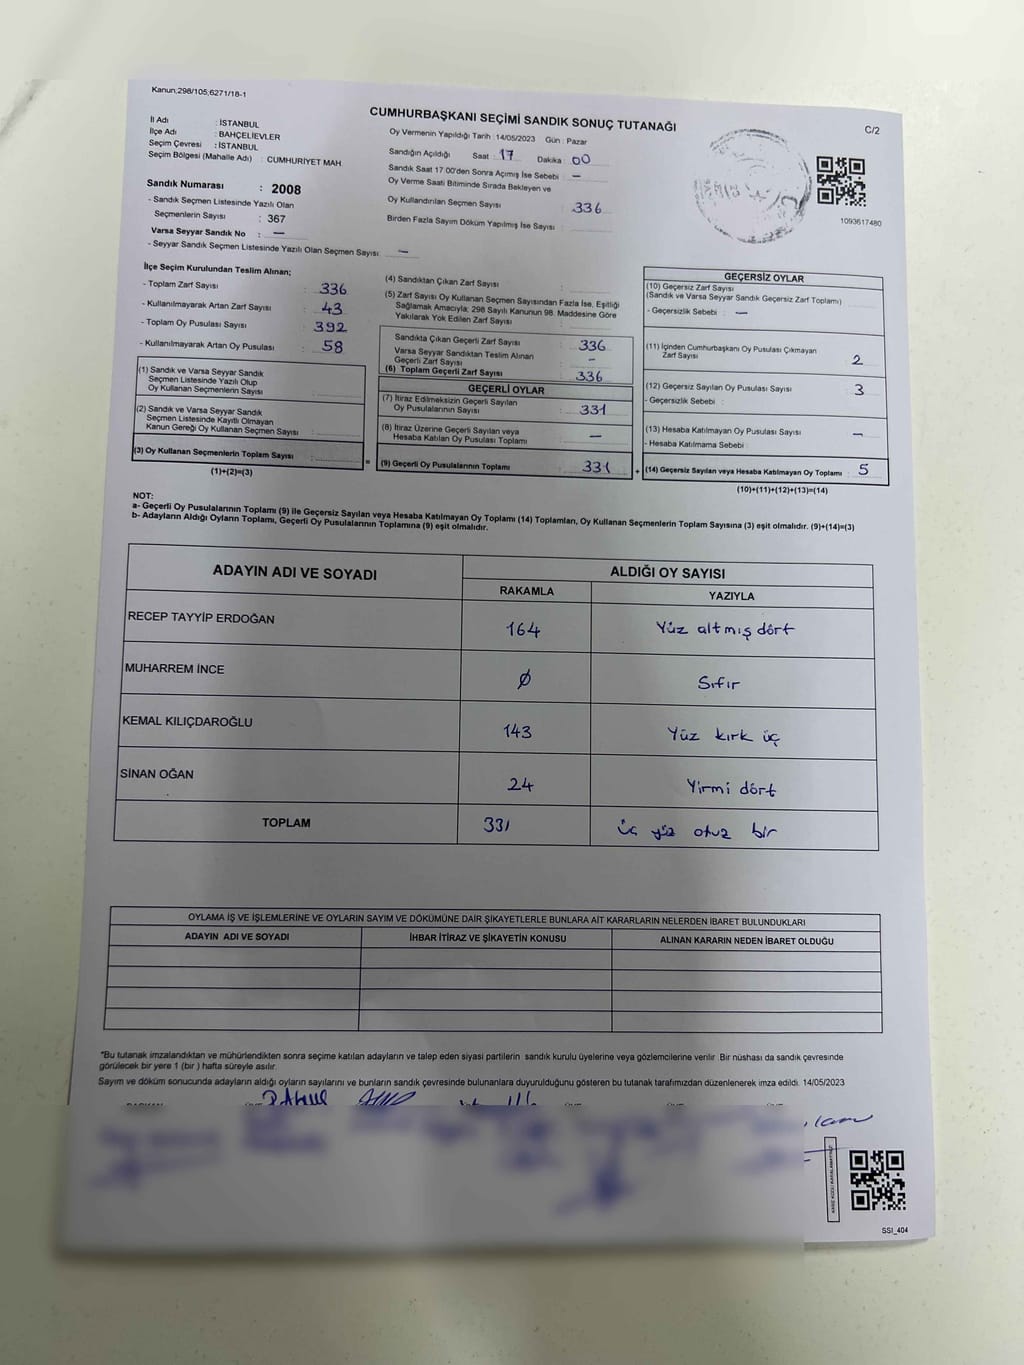 Kanun;298/105;6271/18-1
CUMHURBAŞKANI SEÇİMİ SANDIK SONUÇ TUTANAĞI
C/2
İl Adı : İSTANBUL
İlçe Adı : BAHÇELİEVLER
Seçim Çevresi : İSTANBUL
Seçim Bölgesi (Mahalle Adı) : CUMHURİYET MAH.
Sandık Numarası : 2008
- Sandık Seçmen Listesinde Yazılı Olan
Seçmenlerin Sayısı : 367
Varsa Seyyar Sandık No : —
- Seyyar Sandık Seçmen Listesinde Yazılı Olan Seçmen Sayısı: —
Oy Vermenin Yapıldığı Tarih :14/05/2023 Gün : Pazar
Sandığın Açıldığı Saat : 17 Dakika : 00
Sandık Saat 17:00'den Sonra Açımış İse Sebebi : —
Oy Verme Saati Bitiminde Sırada Bekleyen ve
Oy Kullandırılan Seçmen Sayısı : 336
Birden Fazla Sayım Döküm Yapılmış İse Sayısı :
1093617480
İlçe Seçim Kurulundan Teslim Alınan;
- Toplam Zarf Sayısı : 336
- Kullanılmayarak Artan Zarf Sayısı : 43
- Toplam Oy Pusulası Sayısı : 392
- Kullanılmayarak Artan Oy Pusulası : 58
(1) Sandık ve Varsa Seyyar Sandık
Seçmen Listesinde Yazılı Olup
Oy Kullanan Seçmenlerin Sayısı :
(2) Sandık ve Varsa Seyyar Sandık
Seçmen Listesinde Kayıtlı Olmayan
Kanun Gereği Oy Kullanan Seçmen Sayısı :
(3) Oy Kullanan Seçmenlerin Toplam Sayısı :
(1)+(2)=(3)
(4) Sandıktan Çıkan Zarf Sayısı :
(5) Zarf Sayısı Oy Kullanan Seçmen Sayısından Fazla İse, Eşitliği
Sağlamak Amacıyla; 298 Sayılı Kanunun 98. Maddesine Göre
Yakılarak Yok Edilen Zarf Sayısı :
Sandıkta Çıkan Geçerli Zarf Sayısı : 336
Varsa Seyyar Sandıktan Teslim Alınan
Geçerli Zarf Sayısı : —
(6) Toplam Geçerli Zarf Sayısı : 336
GEÇERLİ OYLAR
(7) İtiraz Edilmeksizin Geçerli Sayılan
Oy Pusulalarının Sayısı : 331
(8) İtiraz Üzerine Geçerli Sayılan veya
Hesaba Katılan Oy Pusulası Toplamı : —
(9) Geçerli Oy Pusulalarının Toplamı : 331
GEÇERSİZ OYLAR
(10) Geçersiz Zarf Sayısı
(Sandık ve Varsa Seyyar Sandık Geçersiz Zarf Toplamı)
- Geçersizlik Sebebi : —
(11) İçinden Cumhurbaşkanı Oy Pusulası Çıkmayan
Zarf Sayısı : 2
(12) Geçersiz Sayılan Oy Pusulası Sayısı : 3
- Geçersizlik Sebebi :
(13) Hesaba Katılmayan Oy Pusulası Sayısı : —
- Hesaba Katılmama Sebebi :
(14) Geçersiz Sayılan veya Hesaba Katılmayan Oy Toplamı : 5
(10)+(11)+(12)+(13)=(14)
NOT:
a- Geçerli Oy Pusulalarının Toplamı (9) ile Geçersiz Sayılan veya Hesaba Katılmayan Oy Toplamı (14) Toplamları, Oy Kullanan Seçmenlerin Toplam Sayısına (3) eşit olmalıdır. (9)+(14)=(3)
b- Adayların Aldığı Oyların Toplamı, Geçerli Oy Pusulalarının Toplamına (9) eşit olmalıdır.
ADAYIN ADI VE SOYADI ALDIĞI OY SAYISI
RAKAMLA YAZIYLA
RECEP TAYYİP ERDOĞAN 164 Yüz altmış dört
MUHARREM İNCE Ø Sıfır
KEMAL KILIÇDAROĞLU 143 Yüz kırk üç
SİNAN OĞAN 24 Yirmi dört
TOPLAM 331 üç yüz otuz bir
OYLAMA İŞ VE İŞLEMLERİNE VE OYLARIN SAYIM VE DÖKÜMÜNE DAİR ŞİKAYETLERLE BUNLARA AİT KARARLARIN NELERDEN İBARET BULUNDUKLARI
ADAYIN ADI VE SOYADI İHBAR İTİRAZ VE ŞİKAYETİN KONUSU ALINAN KARARIN NEDEN İBARET OLDUĞU
*Bu tutanak imzalandıktan ve mühürlendikten sonra seçime katılan adayların ve talep eden siyasi partilerin sandık kurulu üyelerine veya gözlemcilerine verilir. Bir nüshası da sandık çevresinde
görülecek bir yere 1 (bir ) hafta süreyle asılır.
Sayım ve döküm sonucunda adayların aldığı oyların sayılarını ve bunların sandık çevresinde bulunanlara duyurulduğunu gösteren bu tutanak tarafımızdan düzenlenerek imza edildi. 14/05/2023
SSI_404